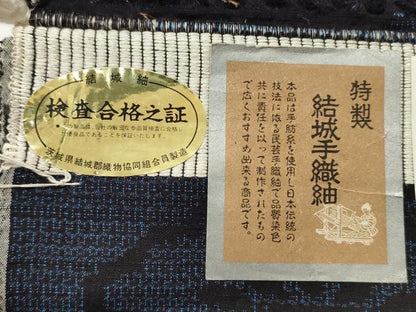 結城紬
検査合格之証
茨城県結城郡織物協同組合員製造
特製
結城手織紬
本品は手紡糸を使用し日本伝統の
技法に依る民芸手織紬で品質染色
共に責任を以って制作されたもの
で広くおすすめ出来る商品です。